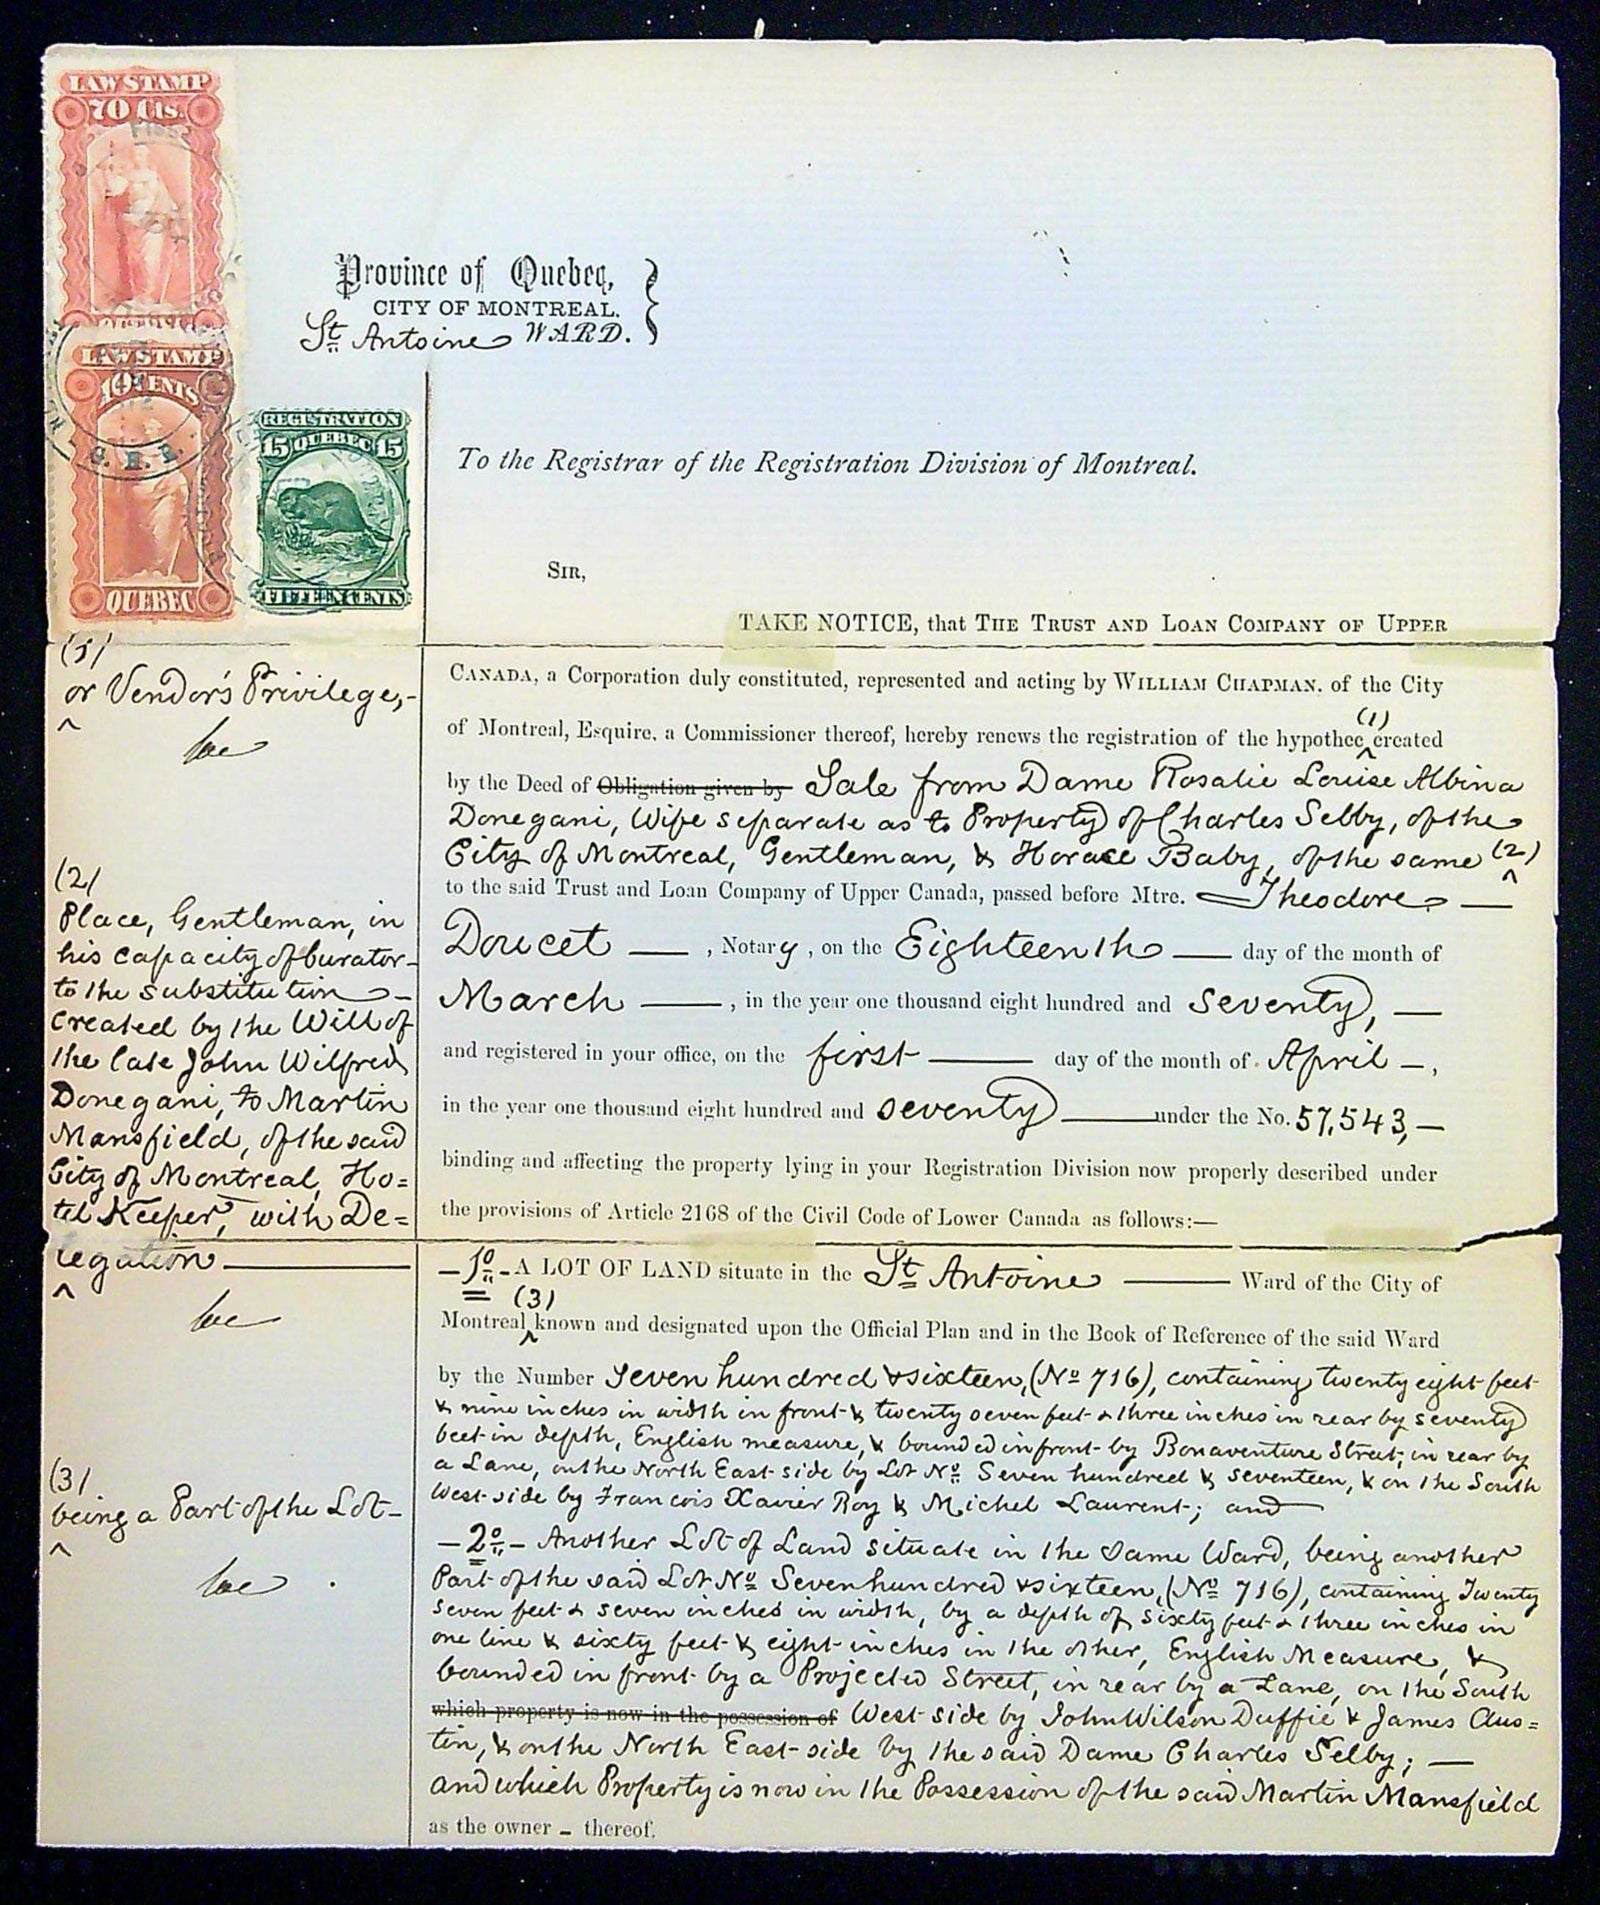 LAW STAMP
70 Cts.
LAW STAMP
10 CENTS
QUEBEC
REGISTRATION
15 QUEBEC 15
FIFTEEN CENTS
Province of Quebec,
CITY OF MONTREAL.
St Antoine WARD.
To the Registrar of the Registration Division of Montreal.
SIR,
TAKE NOTICE, that THE TRUST AND LOAN COMPANY OF UPPER
CANADA, a Corporation duly constituted, represented and acting by WILLIAM CHAPMAN, of the City
of Montreal, Esquire, a Commissioner thereof, hereby renews the registration of the hypothec (1) created
by the Deed of Obligation given by Sale from Dame Rosalie Louise Albina
Donegani, Wife separate as to Property of Charles Selby, of the
City of Montreal, Gentleman, & Horace Baby, of the same (2)
to the said Trust and Loan Company of Upper Canada, passed before Mtre. Theodore —
Doucet —, Notary, on the Eighteenth — day of the month of
March —, in the year one thousand eight hundred and Seventy, —
and registered in your office, on the first — day of the month of April —,
in the year one thousand eight hundred and seventy — under the No. 57,543, —
binding and affecting the property lying in your Registration Division now properly described under
the provisions of Article 2168 of the Civil Code of Lower Canada as follows:—
— 1o — A LOT OF LAND situate in the St Antoine — Ward of the City of
Montreal, (3) known and designated upon the Official Plan and in the Book of Reference of the said Ward
by the Number Seven hundred & sixteen, (No 716), containing twenty eight feet
& nine inches in width in front & twenty seven feet & three inches in rear by seventy
feet in depth, English measure, & bounded in front by Bonaventure Street, in rear by
a Lane, on the North East side by Lot No Seven hundred & seventeen, & on the South
West side by Francois Xavier Roy & Michel Laurent; and —
— 2o — Another Lot of Land situate in the same Ward, being another
Part of the said Lot No Seven hundred & sixteen, (No 716), containing Twenty
seven feet & seven inches in width, by a depth of sixty feet & three inches in
one line & sixty feet & eight inches in the other, English Measure, &
bounded in front by a Projected Street, in rear by a Lane, on the South
which property is now in the possession of West side by John Wilson Duffie & James Aus=
tin, & on the North East side by the said Dame Charles Selby; —
and which Property is now in the Possession of the said Martin Mansfield
as the owner — thereof.
(1)
or Vendor's Privilege,—
(2)
Place, Gentleman, in
his capacity of Curator —
to the substitution —
created by the Will of
the late John Wilfred
Donegani, to Martin
Mansfield, of the said
City of Montreal, Ho=
tel Keeper, with De=
legation —
(3)
being a Part of the Lot —